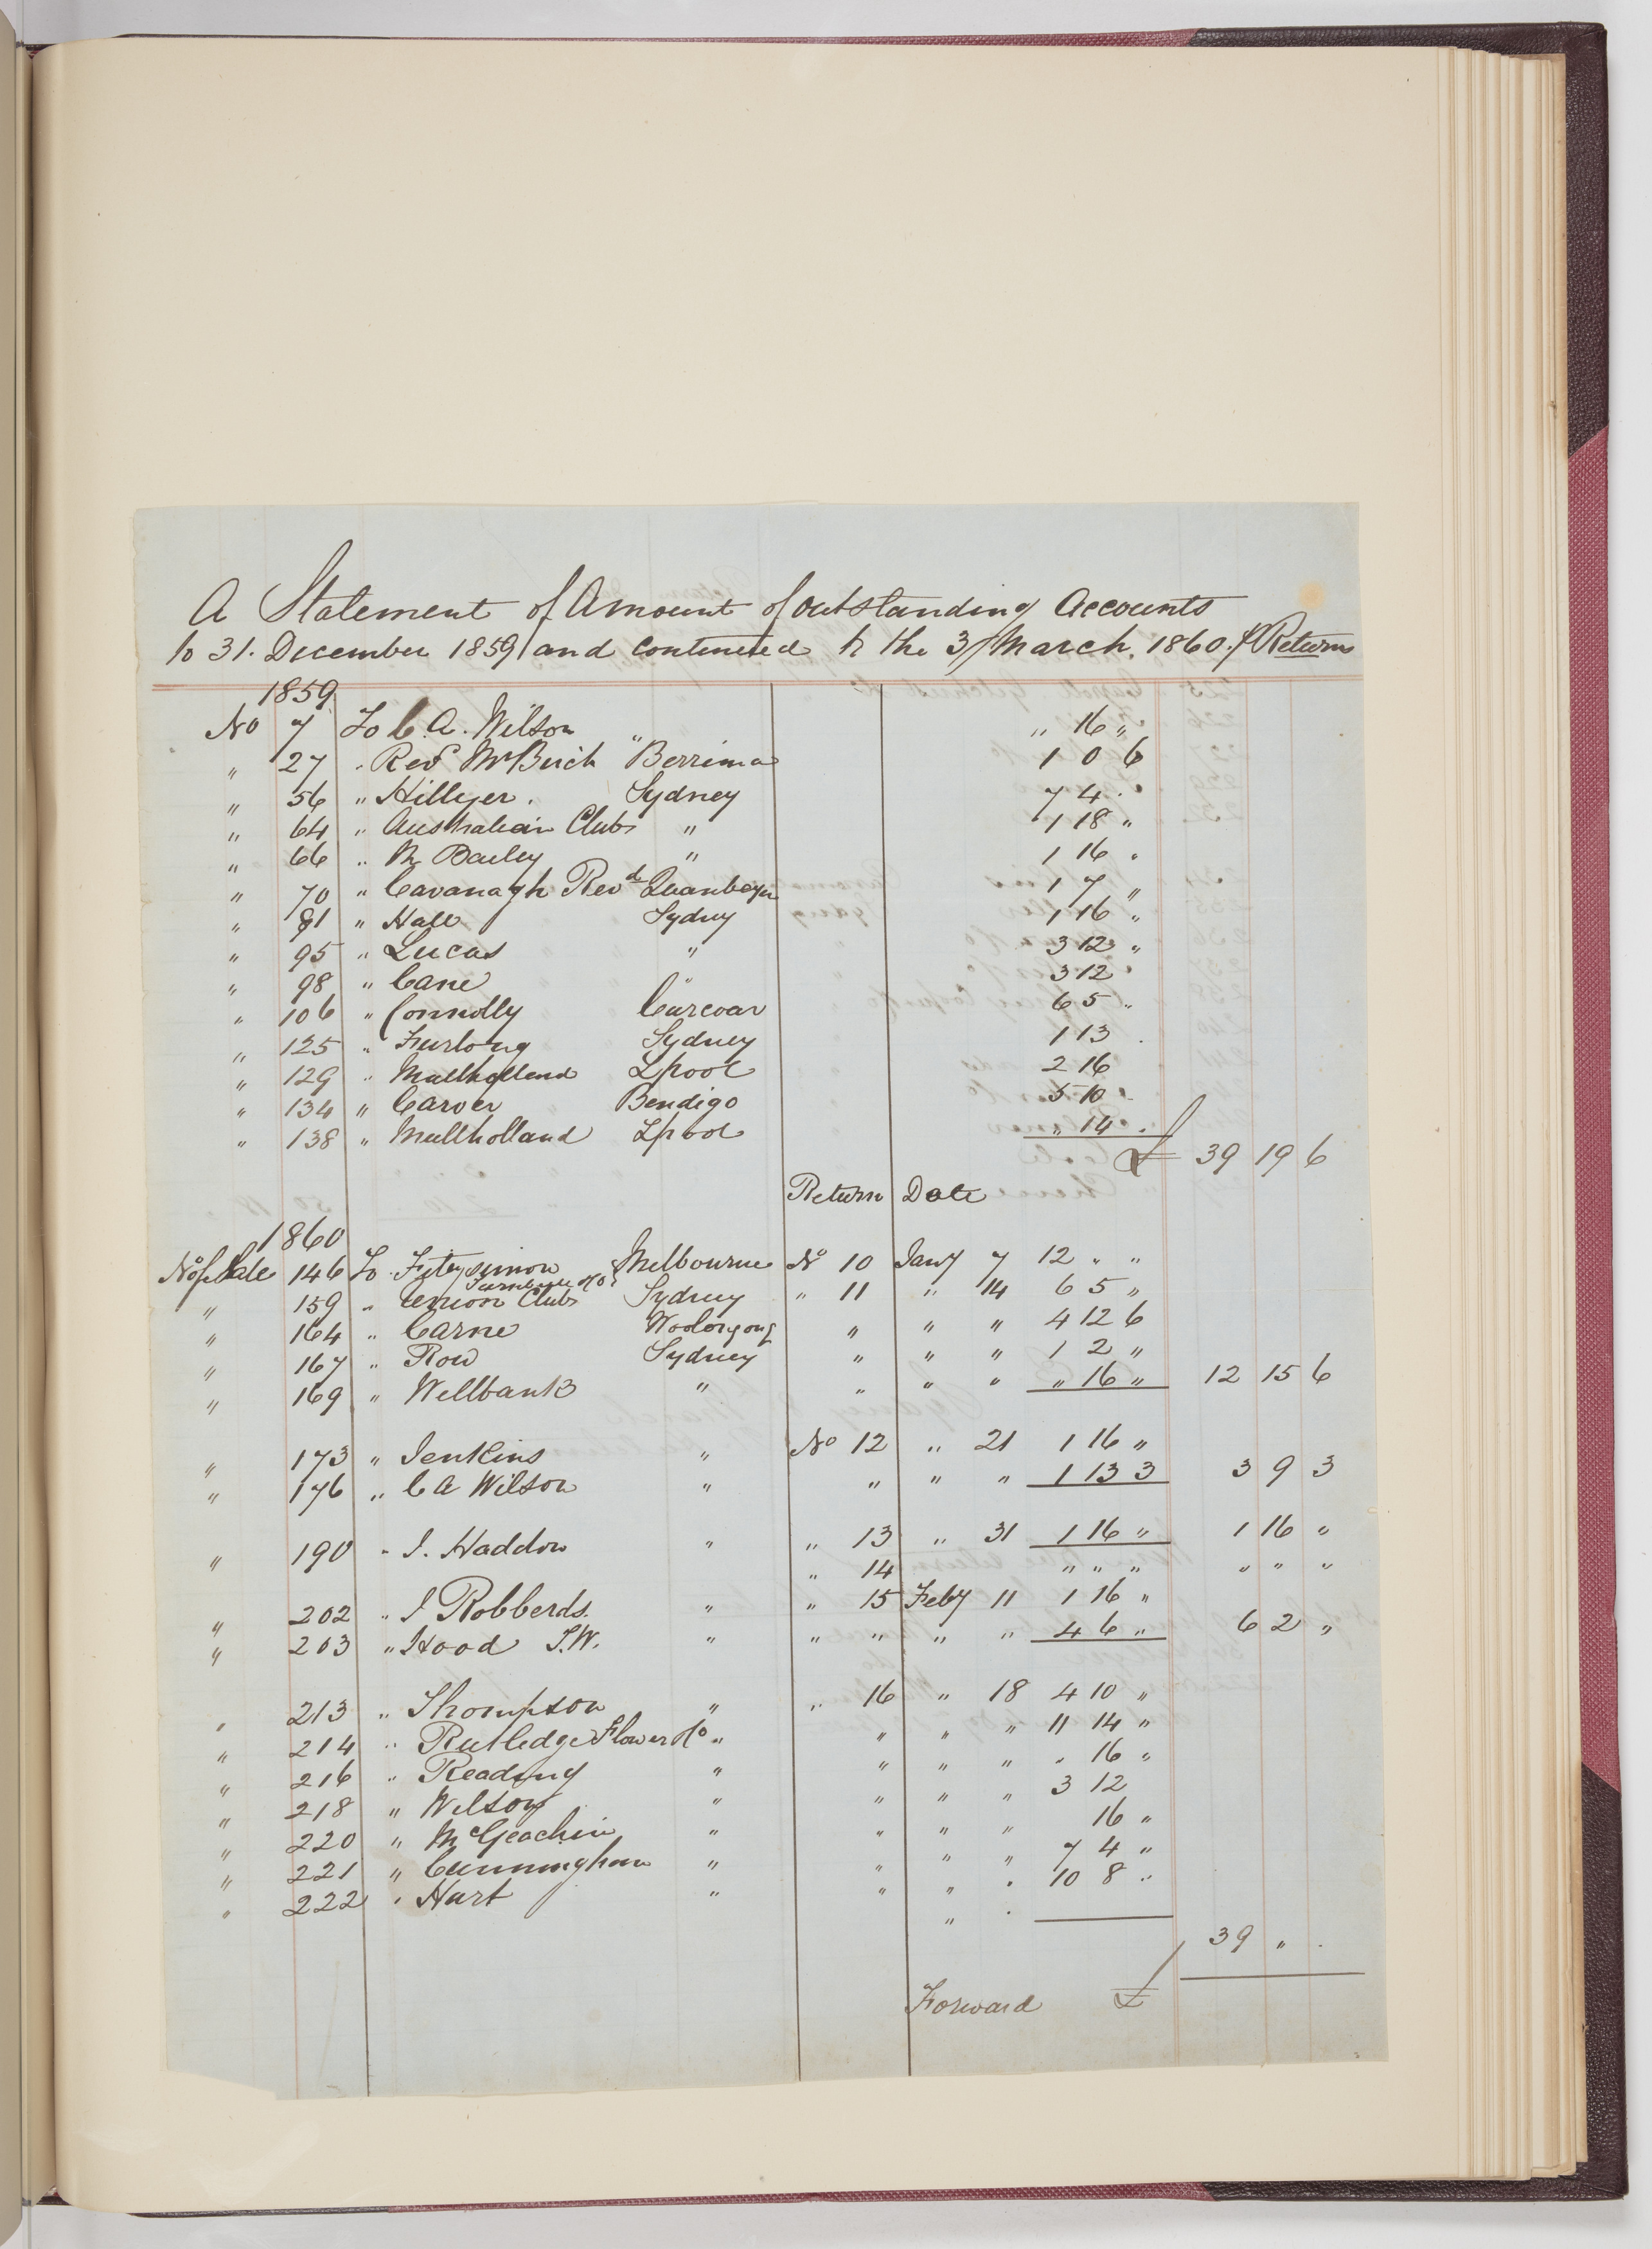 A Statement of Amount of outstanding Accounts
to 31. December 1859 and continued to the 3/March. 1860. pr Return
1859
No 7 To C. A. Wilson " " 16 "
" 27 . Revd Mr Birch Berrima 1 0 6
" 56 " Hillyer . Sydney 7 4 .
" 64 " Australian Club " 1 18 "
" 66 " Mr Bailey " 1 16 "
" 70 " Cavanagh Revd Queanbeyan 1 7 "
" 91 " Hall Sydney 1 16 "
" 95 " Lucas " 3 12 "
" 98 " Cane " 3 12
" 106 " Connolly Carcoar 6 5 "
" 125 " Furlong Sydney 1 13 .
" 129 " Mullholland Lpool 2 16
" 134 " Carver Bendigo 5 10 .
" 138 " Mullholland Lpool " 14 .
£ 39 19 6
Return Date
1860
No of Sale 146 To Fitzsimon Melbourne No 10 Jany 7 12 " "
" 159 " Union Club Sydney " 11 " 14 6 5 "
" 164 " Carne Woolongong " " " 4 12 6
" 167 " Row Sydney " " " 1 2 "
" 169 " Wellbank " " " " " 16 " 12 15 6
" 173 " Jenkins " No 12 " 21 1 16 "
" 176 " C A Wilson " " " " 1 13 3 3 9 3
" 190 " I. Haddon " " 13 " 31 1 16 " 1 16 "
" 14 " " " " " "
" 202 " I Robberds. " " 15 Feby 11 1 16 "
" 203 " Hood J.W. " " " " " 4 6 " 6 2 "
" 213 " Thompson " " 16 " 18 4 10 "
" 214 " Rutledge Flower & Co " " " " 11 14 "
" 216 " Reading " " " " " 16 "
" 218 " Wilson " " " " 3 12
" 220 " McGeachin " " " " 16 "
" 221 " Cunningham " " " " 7 4 "
" 222 " Hart " " " " 10 8 "
" .
39 " .
Forward £